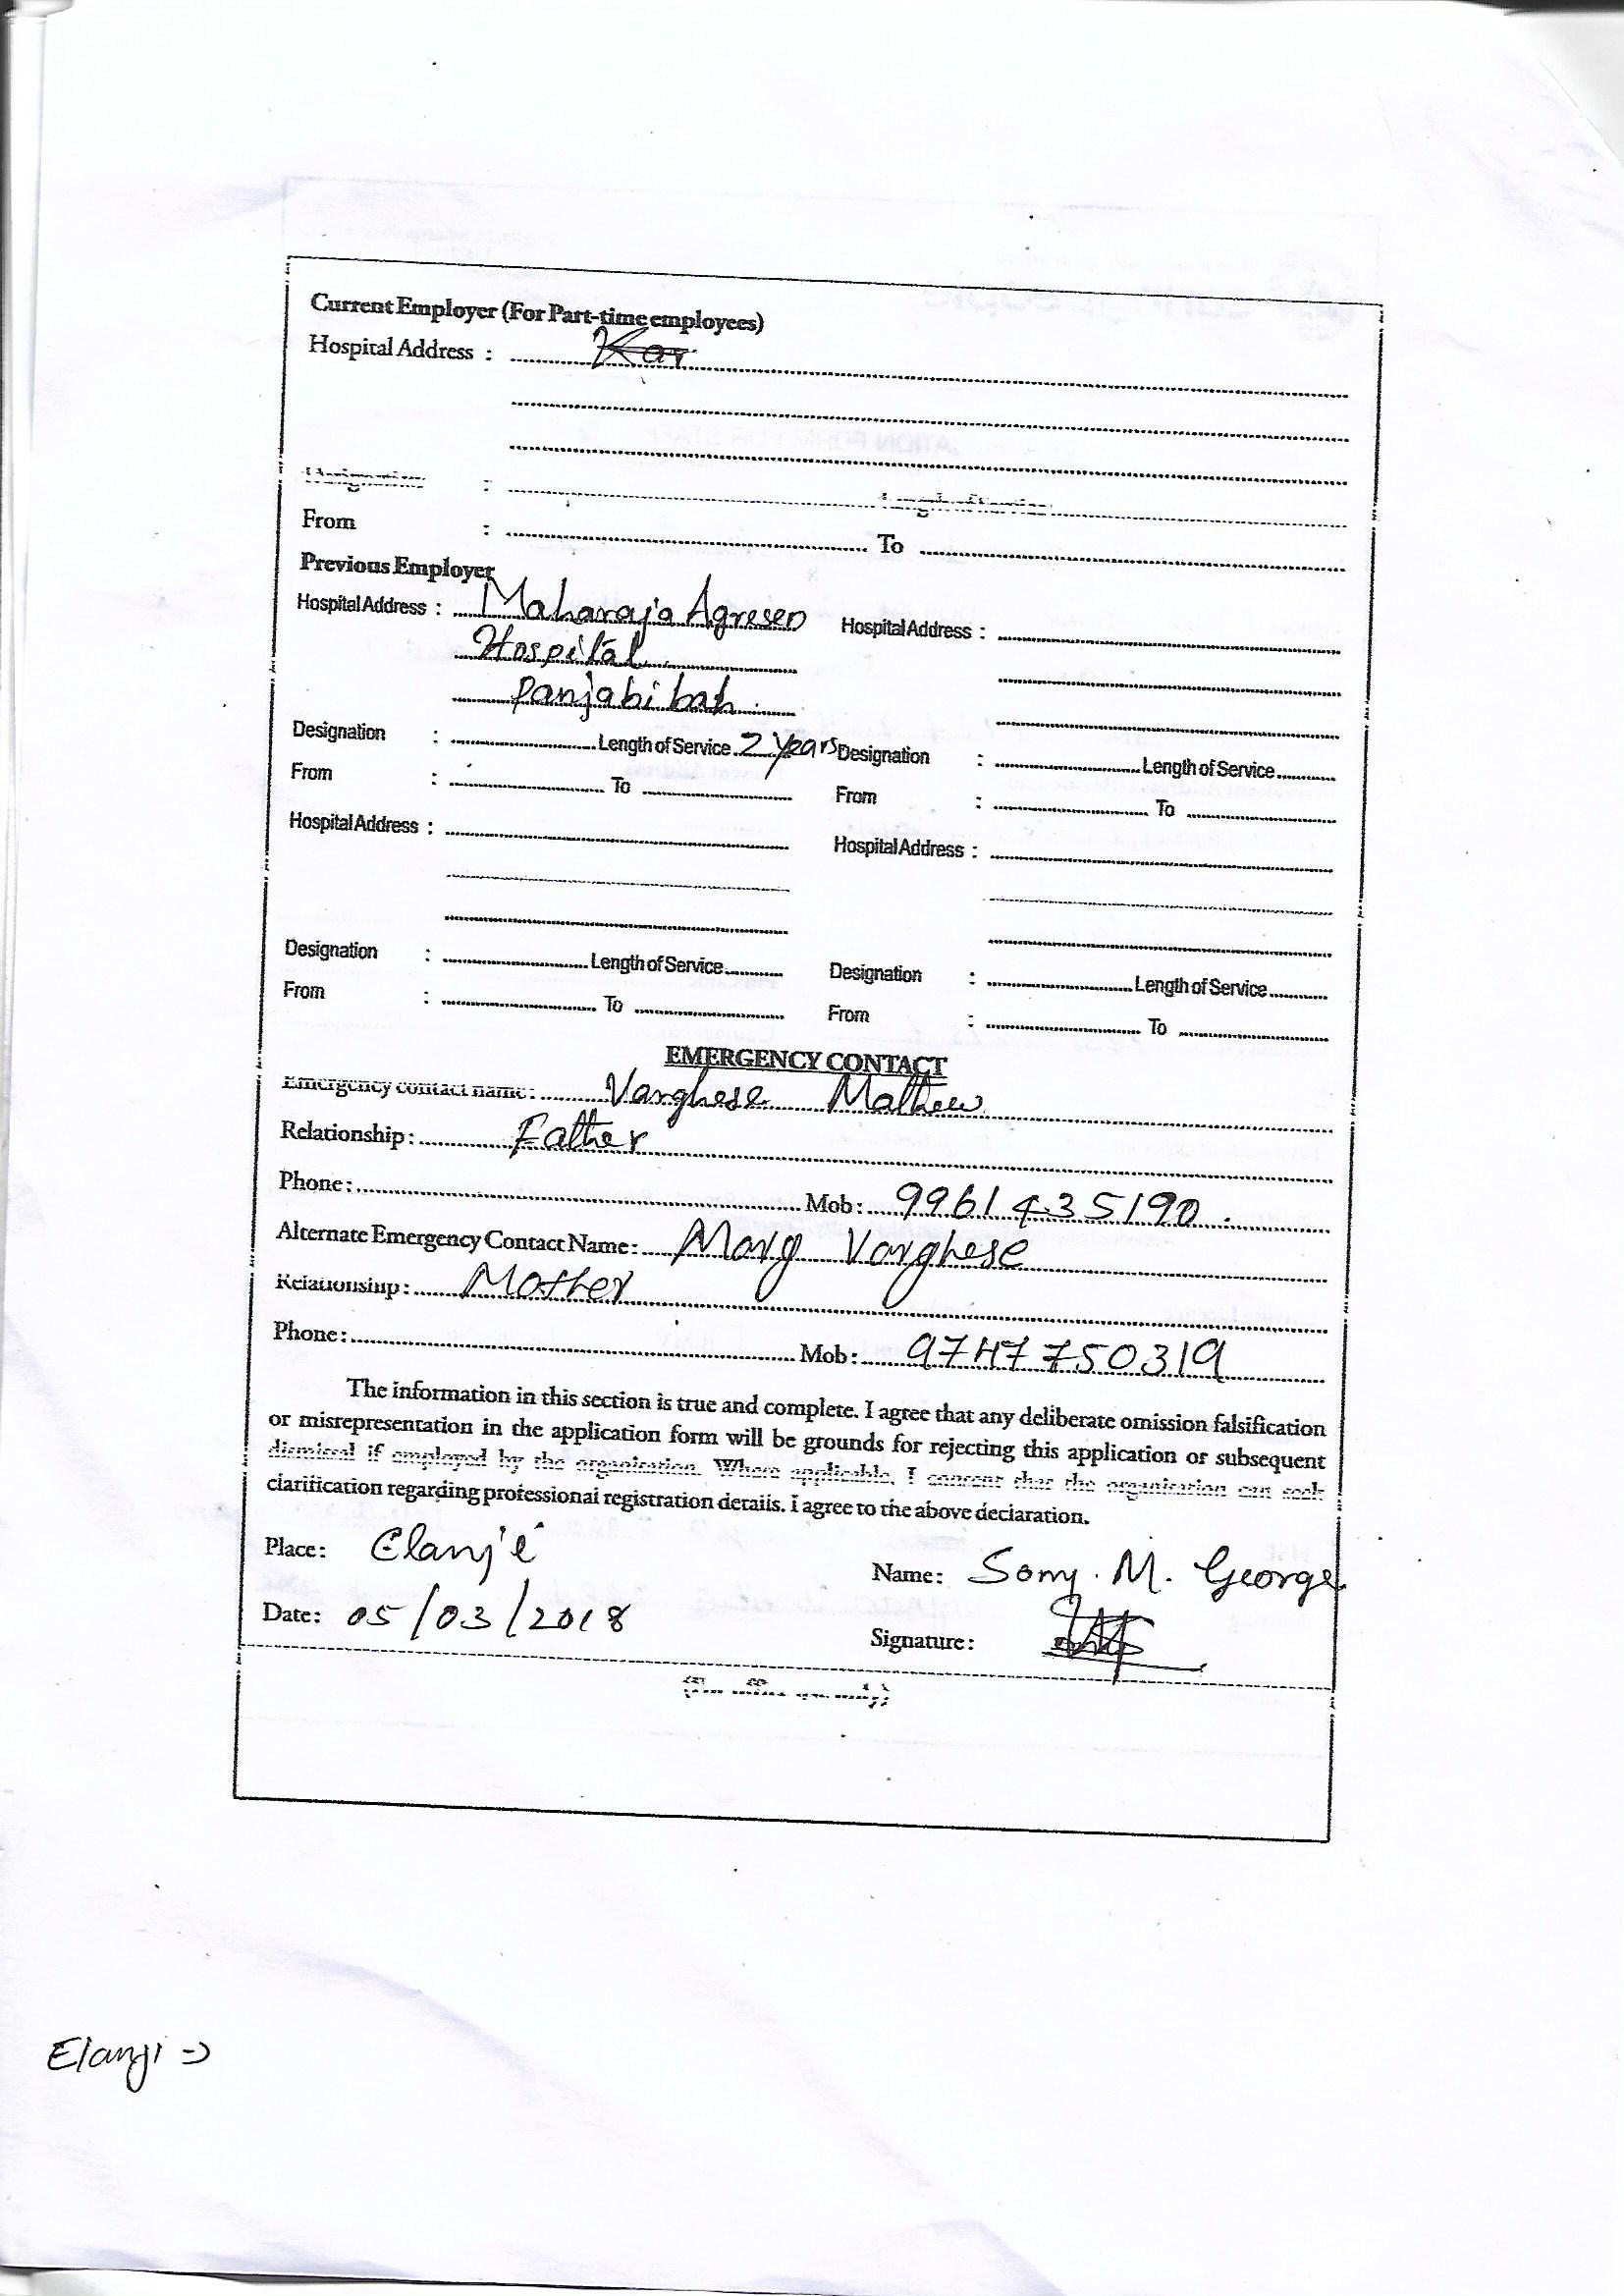 Current Employer (For Part-time employees)
Hospital Address : Kar
Designation : Length of Service
From : To
Previous Employer
Hospital Address : Maharaja Agresen Hospital Address :
Hospital
Panjabi bah
Designation : Length of Service 2 years Designation : Length of Service
From : To From : To
Hospital Address : Hospital Address :
Designation : Length of Service Designation : Length of Service
From : To From : To
EMERGENCY CONTACT
Emergency contact name: Varghese Mathew
Relationship: Father
Phone: Mob: 9961435190.
Alternate Emergency Contact Name: Mary Varghese
Relationship: Mother
Phone: Mob: 9747750319
The information in this section is true and complete. I agree that any deliberate omission falsification
or misrepresentation in the application form will be grounds for rejecting this application or subsequent
dismissal if employed by the organisation. Where applicable, I consent that the organisation can seek
clarification regarding professional registration details. I agree to the above declaration.
Place: Elanji
Name: Sony. M. George
Date: 05/03/2018
Signature:
(For office use only)
Elanji =>